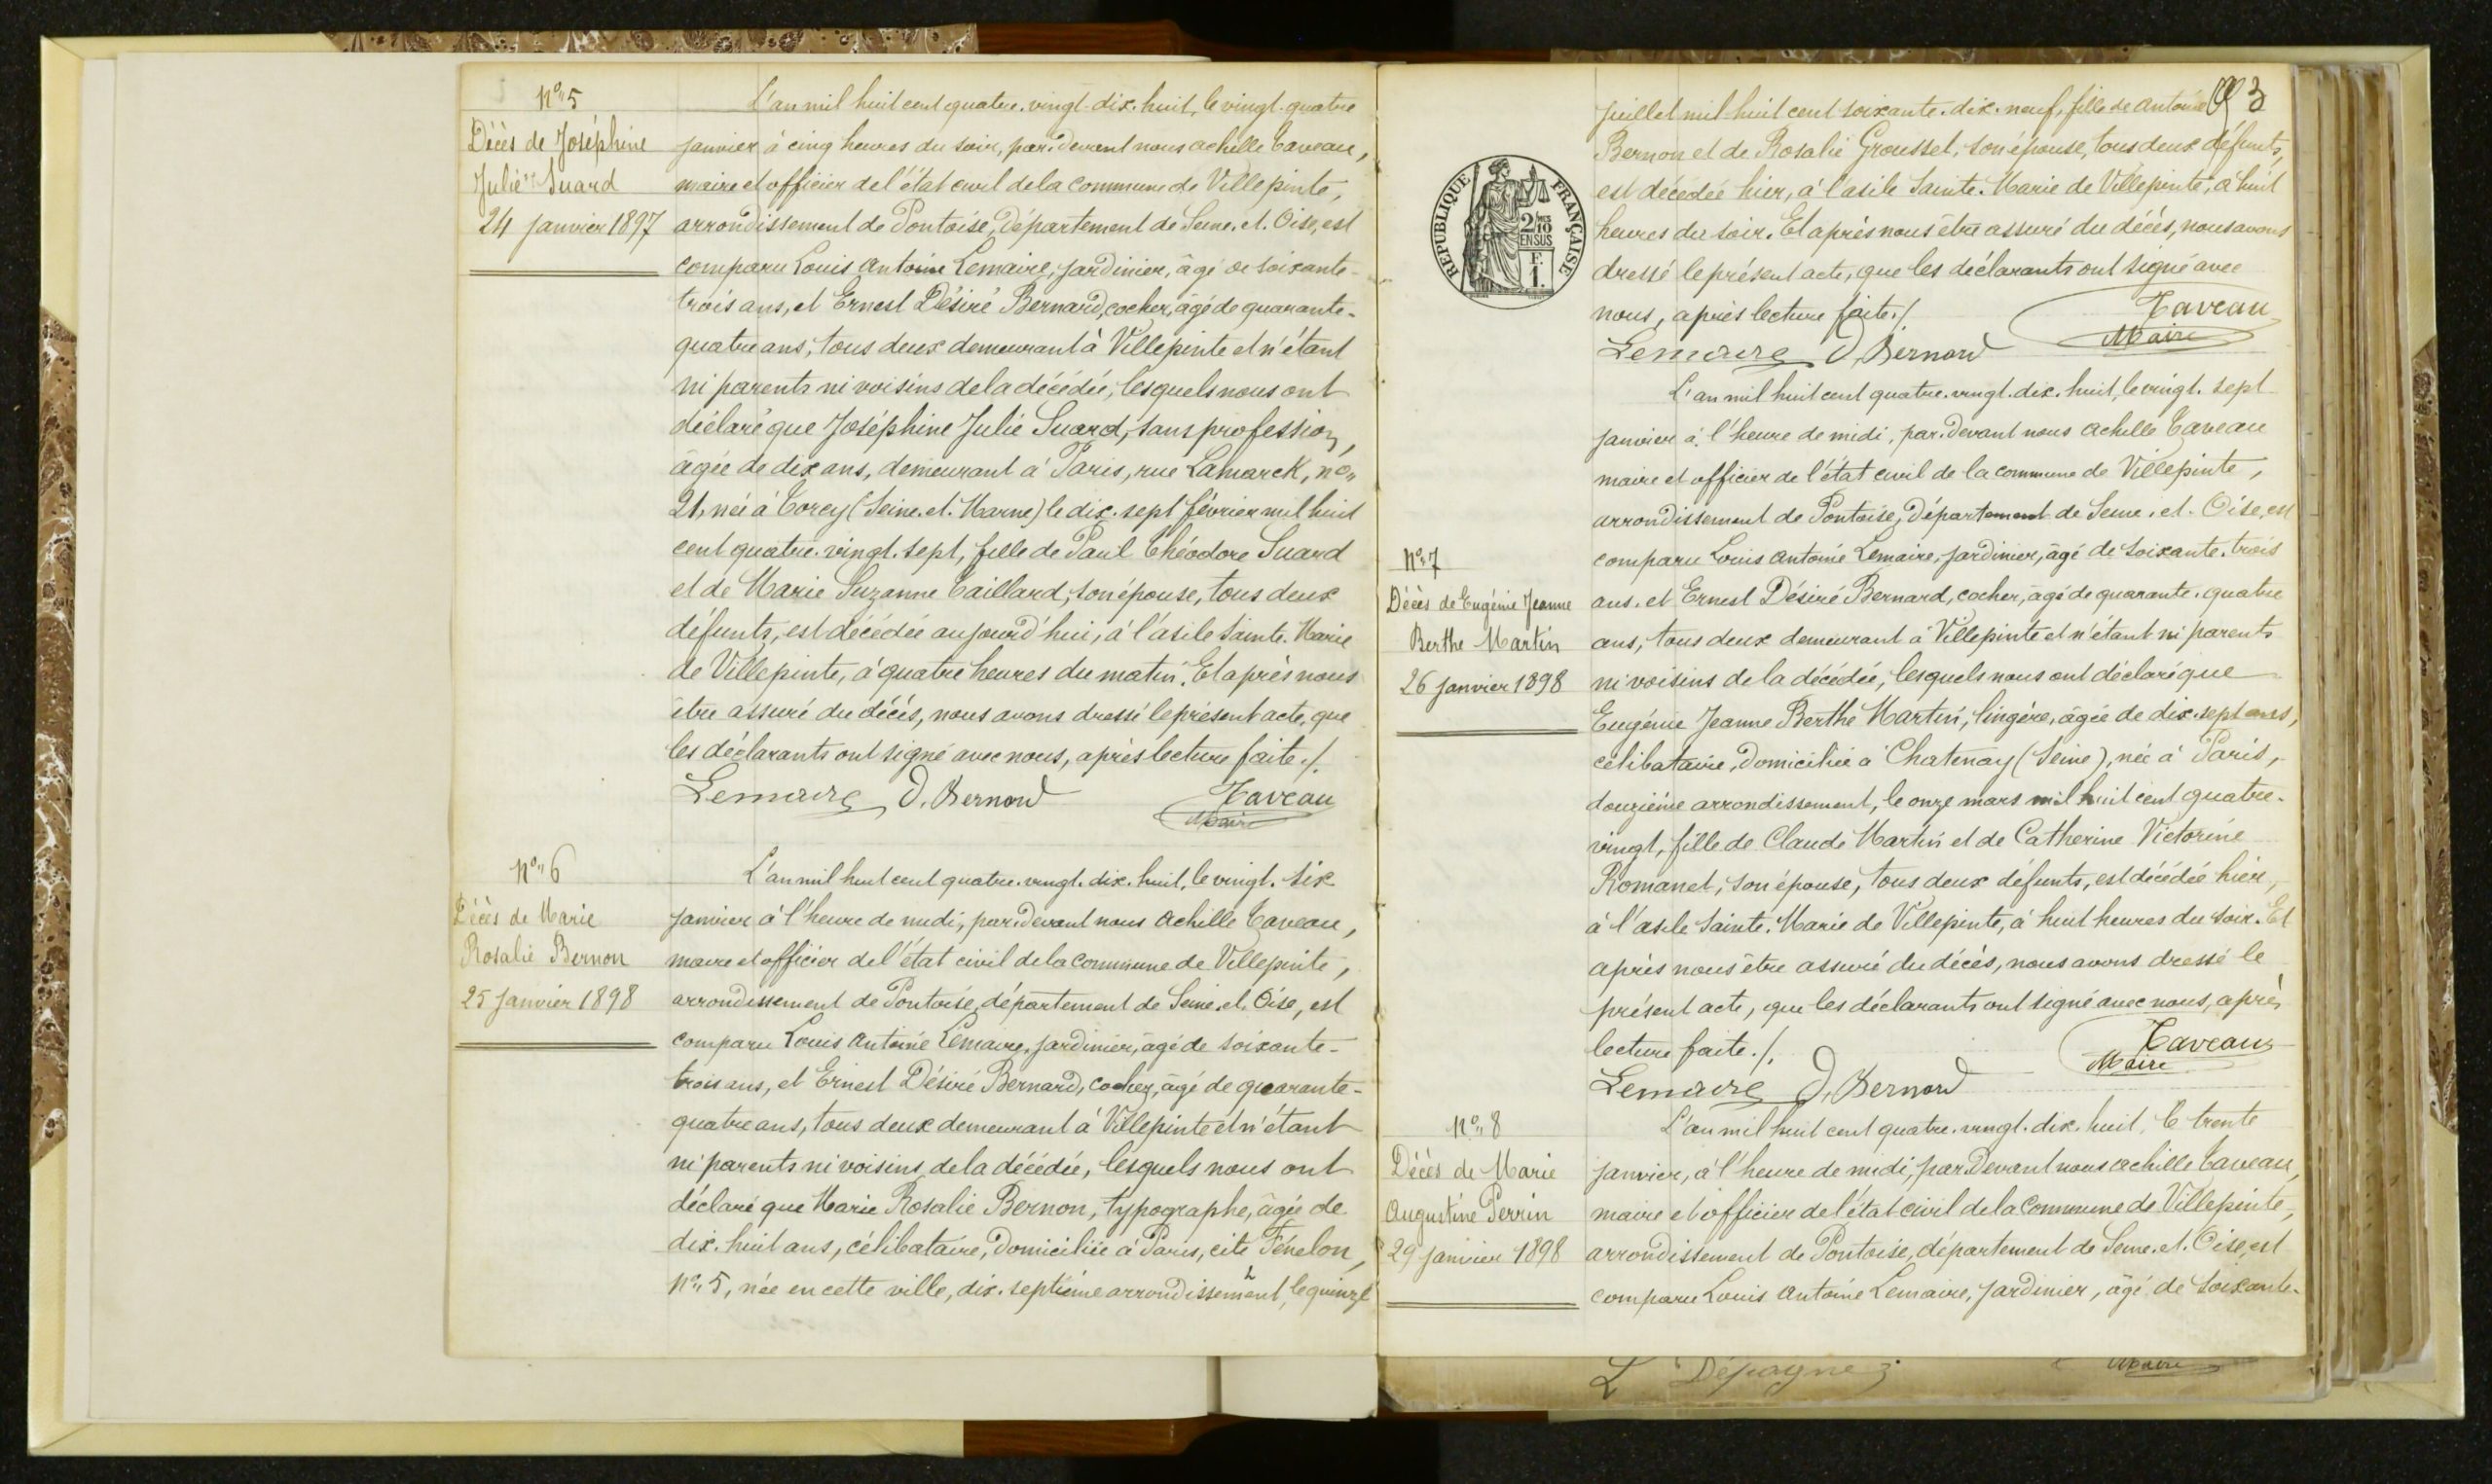 N° 5
Décès de Joséphine
Julie Suard
24 janvier 1897
L'an mil huit cent quatre-vingt-dix-huit, le vingt-quatre
janvier à cinq heures du soir, par-devant nous achille Taveau,
maire et officier de l'état civil de la commune de Villepinte,
arrondissement de Pontoise, département de Seine-et-Oise, est
comparu Louis antoine Lemaire, jardinier, âgé de soixante-
trois ans, et Ernest Désiré Bernard, cocher, âgé de quarante-
quatre ans, tous deux demeurant à Villepinte et n'étant
ni parents ni voisins de la décédée, lesquels nous ont
déclaré que Joséphine Julie Suard, sans profession,
âgée de dix ans, demeurant à Paris, rue Lamarck, n°
21, née à Torcy (Seine-et-Marne) le dix-sept février mil huit
cent quatre-vingt-sept, fille de Paul Théodore Suard
et de Marie Suzanne Taillard, son épouse, tous deux
défunts, est décédée aujourd'hui, à l'asile Sainte-Marie
de Villepinte, à quatre heures du matin. Et après nous
être assuré du décès, nous avons dressé le présent acte, que
les déclarants ont signé avec nous, après lecture faite ./.
Lemaire D. Bernard Taveau
Maire
N° 6
Décès de Marie
Rosalie Bernon
25 janvier 1898
L'an mil huit cent quatre-vingt-dix-huit, le vingt-six
janvier à l'heure de midi, par-devant nous achille Taveau,
maire et officier de l'état civil de la commune de Villepinte,
arrondissement de Pontoise, département de Seine-et-Oise, est
comparu Louis antoine Lemaire, jardinier, âgé de soixante-
trois ans, et Ernest Désiré Bernard, cocher, âgé de quarante-
quatre ans, tous deux demeurant à Villepinte et n'étant
ni parents ni voisins de la décédée, lesquels nous ont
déclaré que Marie Rosalie Bernon, typographe, âgée de
dix-huit ans, célibataire, domiciliée à Paris, cité Fénelon,
N° 5, née en cette ville, dix-septième arrondissement, le quinze
3
juillet mil huit cent soixante-dix-neuf, fille de antoine
Bernon et de Rosalie Grousset, son épouse, tous deux défunts,
est décédée hier, à l'asile Sainte-Marie de Villepinte, à huit
heures du soir. Et après nous être assuré du décès, nous avons
dressé le présent acte, que les déclarants ont signé avec
nous, après lecture faite ./.
Taveau
Maire
Lemaire D. Bernard
RÉPUBLIQUE FRANÇAISE
2/10 EN SUS
F. 1.
N° 7
Décès de Eugénie Jeanne
Berthe Martin
26 janvier 1898
L'an mil huit cent quatre-vingt-dix-huit, le vingt-sept
janvier à l'heure de midi, par-devant nous achille Taveau
maire et officier de l'état civil de la commune de Villepinte,
arrondissement de Pontoise, département de Seine-et-Oise, est
comparu Louis antoine Lemaire, jardinier, âgé de soixante-trois
ans, et Ernest Désiré Bernard, cocher, âgé de quarante-quatre
ans, tous deux demeurant à Villepinte et n'étant ni parents
ni voisins de la décédée, lesquels nous ont déclaré que
Eugénie Jeanne Berthe Martin, lingère, âgée de dix-sept ans,
célibataire, domiciliée à Chatenay (Seine), née à Paris,
douzième arrondissement, le onze mars mil huit cent quatre-
vingt, fille de Claude Martin et de Catherine Victorine
Romanet, son épouse, tous deux défunts, est décédée hier,
à l'asile Sainte-Marie de Villepinte, à huit heures du soir. Et
après nous être assuré du décès, nous avons dressé le
présent acte, que les déclarants ont signé avec nous, après
lecture faite ./.
Taveau
Maire
Lemaire D. Bernard
N° 8
Décès de Marie
Augustine Perrin
29 janvier 1898
L'an mil huit cent quatre-vingt-dix-huit, le trente
janvier, à l'heure de midi, par devant nous achille Taveau,
maire et officier de l'état civil de la commune de Villepinte,
arrondissement de Pontoise, département de Seine-et-Oise, est
comparu Louis antoine Lemaire, jardinier, âgé de soixante-
L Dépagne
Maire